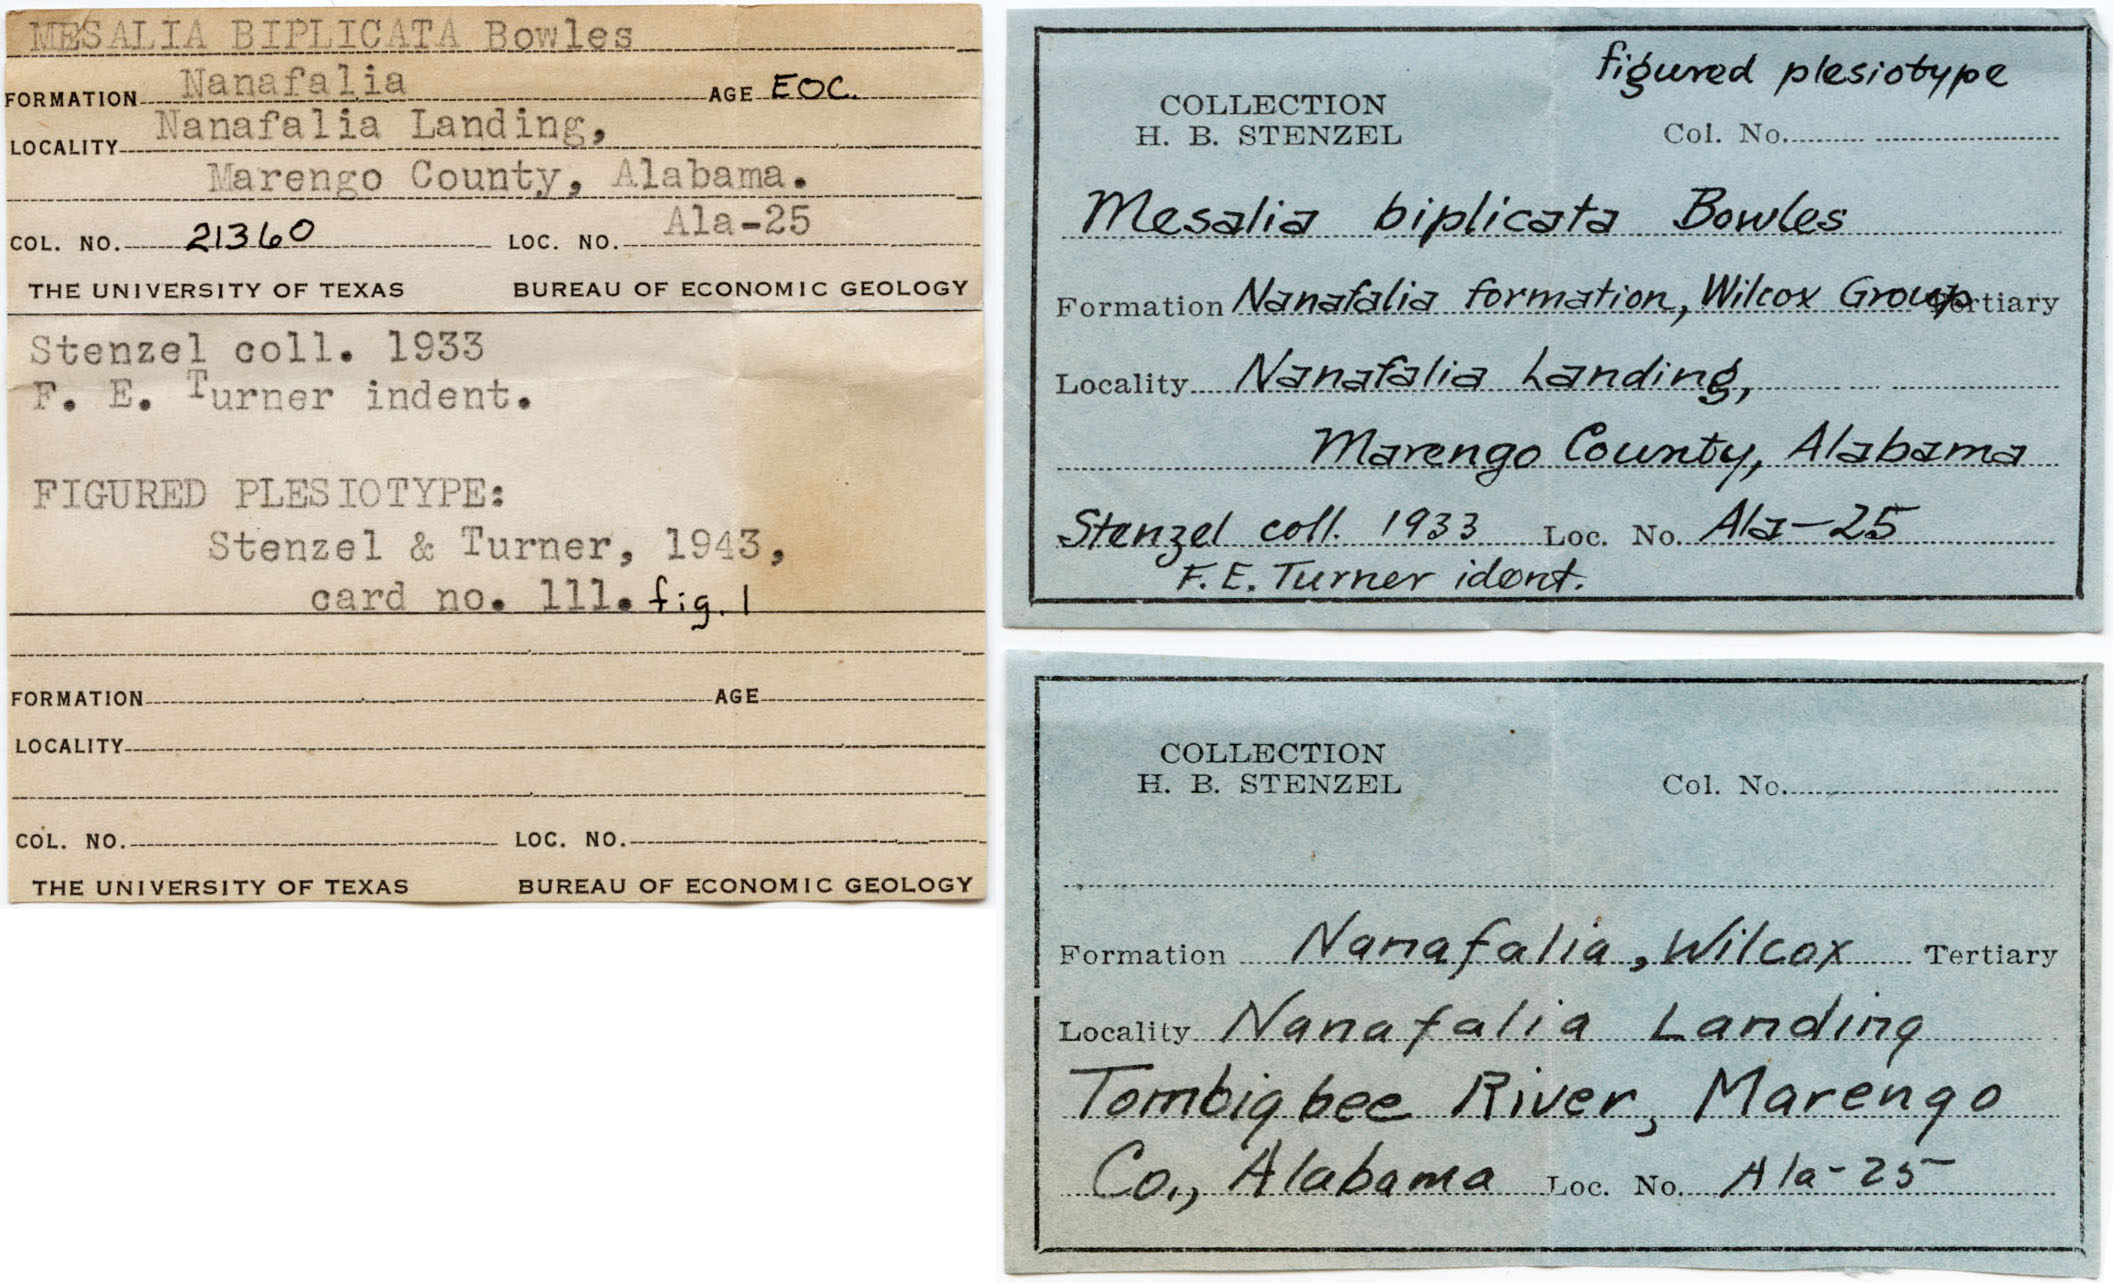 MESALIA BIPLICATA Bowles
FORMATION Nanafalia AGE EOC.
LOCALITY Nanafalia Landing,
Marengo County, Alabama.
COL. NO. 21360 LOC. NO. Ala-25
THE UNIVERSITY OF TEXAS BUREAU OF ECONOMIC GEOLOGY
Stenzel coll. 1933
F. E. Turner indent.
FIGURED PLESIOTYPE:
Stenzel & Turner, 1943,
card no. 111. fig. 1
FORMATION AGE
LOCALITY
COL. NO. LOC. NO.
THE UNIVERSITY OF TEXAS BUREAU OF ECONOMIC GEOLOGY
figured plesiotype
COLLECTION
H. B. STENZEL Col. No.
Mesalia biplicata Bowles
Formation Nanafalia formation, Wilcox Group Tertiary
Locality Nanafalia Landing,
Marengo County, Alabama
Stenzel coll. 1933 Loc. No. Ala-25
F. E. Turner ident.
COLLECTION
H. B. STENZEL Col. No.
Formation Nanafalia, Wilcox Tertiary
Locality Nanafalia Landing
Tombigbee River, Marengo
Co., Alabama Loc. No. Ala-25